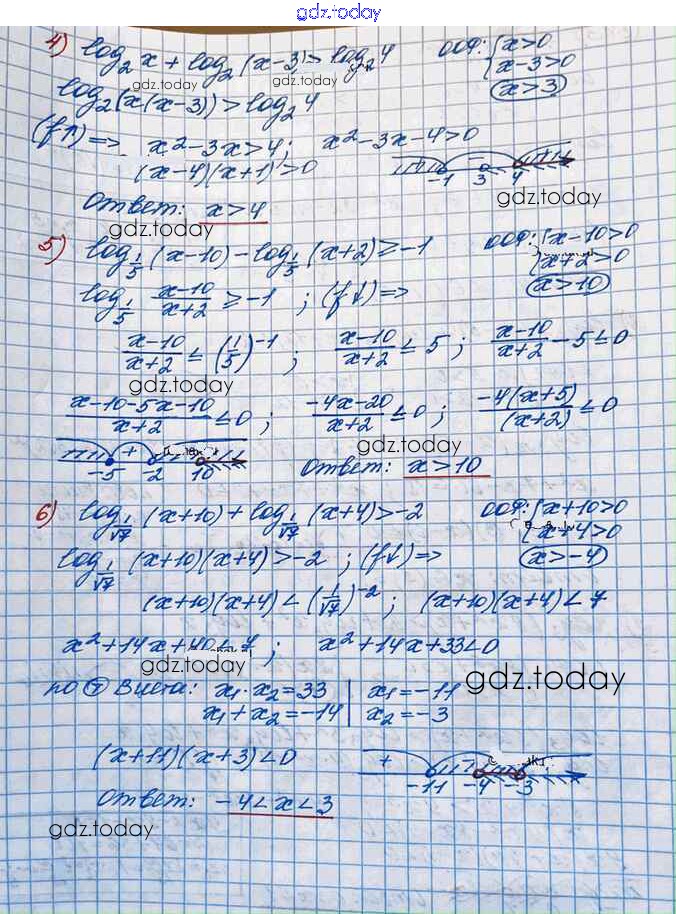 gdz.today
4) log₂ x + log₂ (x-3) > log₂ 4 ООФ: {x>0
gdz.today gdz.today {x-3>0
log₂(x(x-3)) > log₂ 4 (x>3)
(f↑) => x²-3x>4; x²-3x-4>0
(x-4)(x+1)>0 -1 3 4
Ответ: x>4 gdz.today
gdz.today
5) log_{1/5} (x-10) - log_{1/5} (x+2) ≥ -1 ООФ: {x-10>0
{x+2>0
log_{1/5} (x-10)/(x+2) ≥ -1 ; (f↓) => (x>10)
(x-10)/(x+2) ≤ (1/5)^{-1} ; (x-10)/(x+2) ≤ 5 ; (x-10)/(x+2) - 5 ≤ 0
gdz.today
(x-10-5x-10)/(x+2) ≤ 0 ; (-4x-20)/(x+2) ≤ 0 ; (-4(x+5))/(x+2) ≤ 0
gdz.today
+
-5 -2 10 Ответ: x>10
6) log_{1/√7} (x+10) + log_{1/√7} (x+4) > -2 ООФ: {x+10>0
{x+4>0
log_{1/√7} (x+10)(x+4) > -2 ; (f↓) => (x>-4)
(x+10)(x+4) < (1/√7)^{-2} ; (x+10)(x+4) < 7
x²+14x+40<7 ; x²+14x+33<0
gdz.today gdz.today
по Ⓣ Виета: x₁·x₂=33 | x₁=-11
x₁+x₂=-14 | x₂=-3
(x+11)(x+3)<0 +
-11 -4 -3
Ответ: -4<x<3
gdz.today